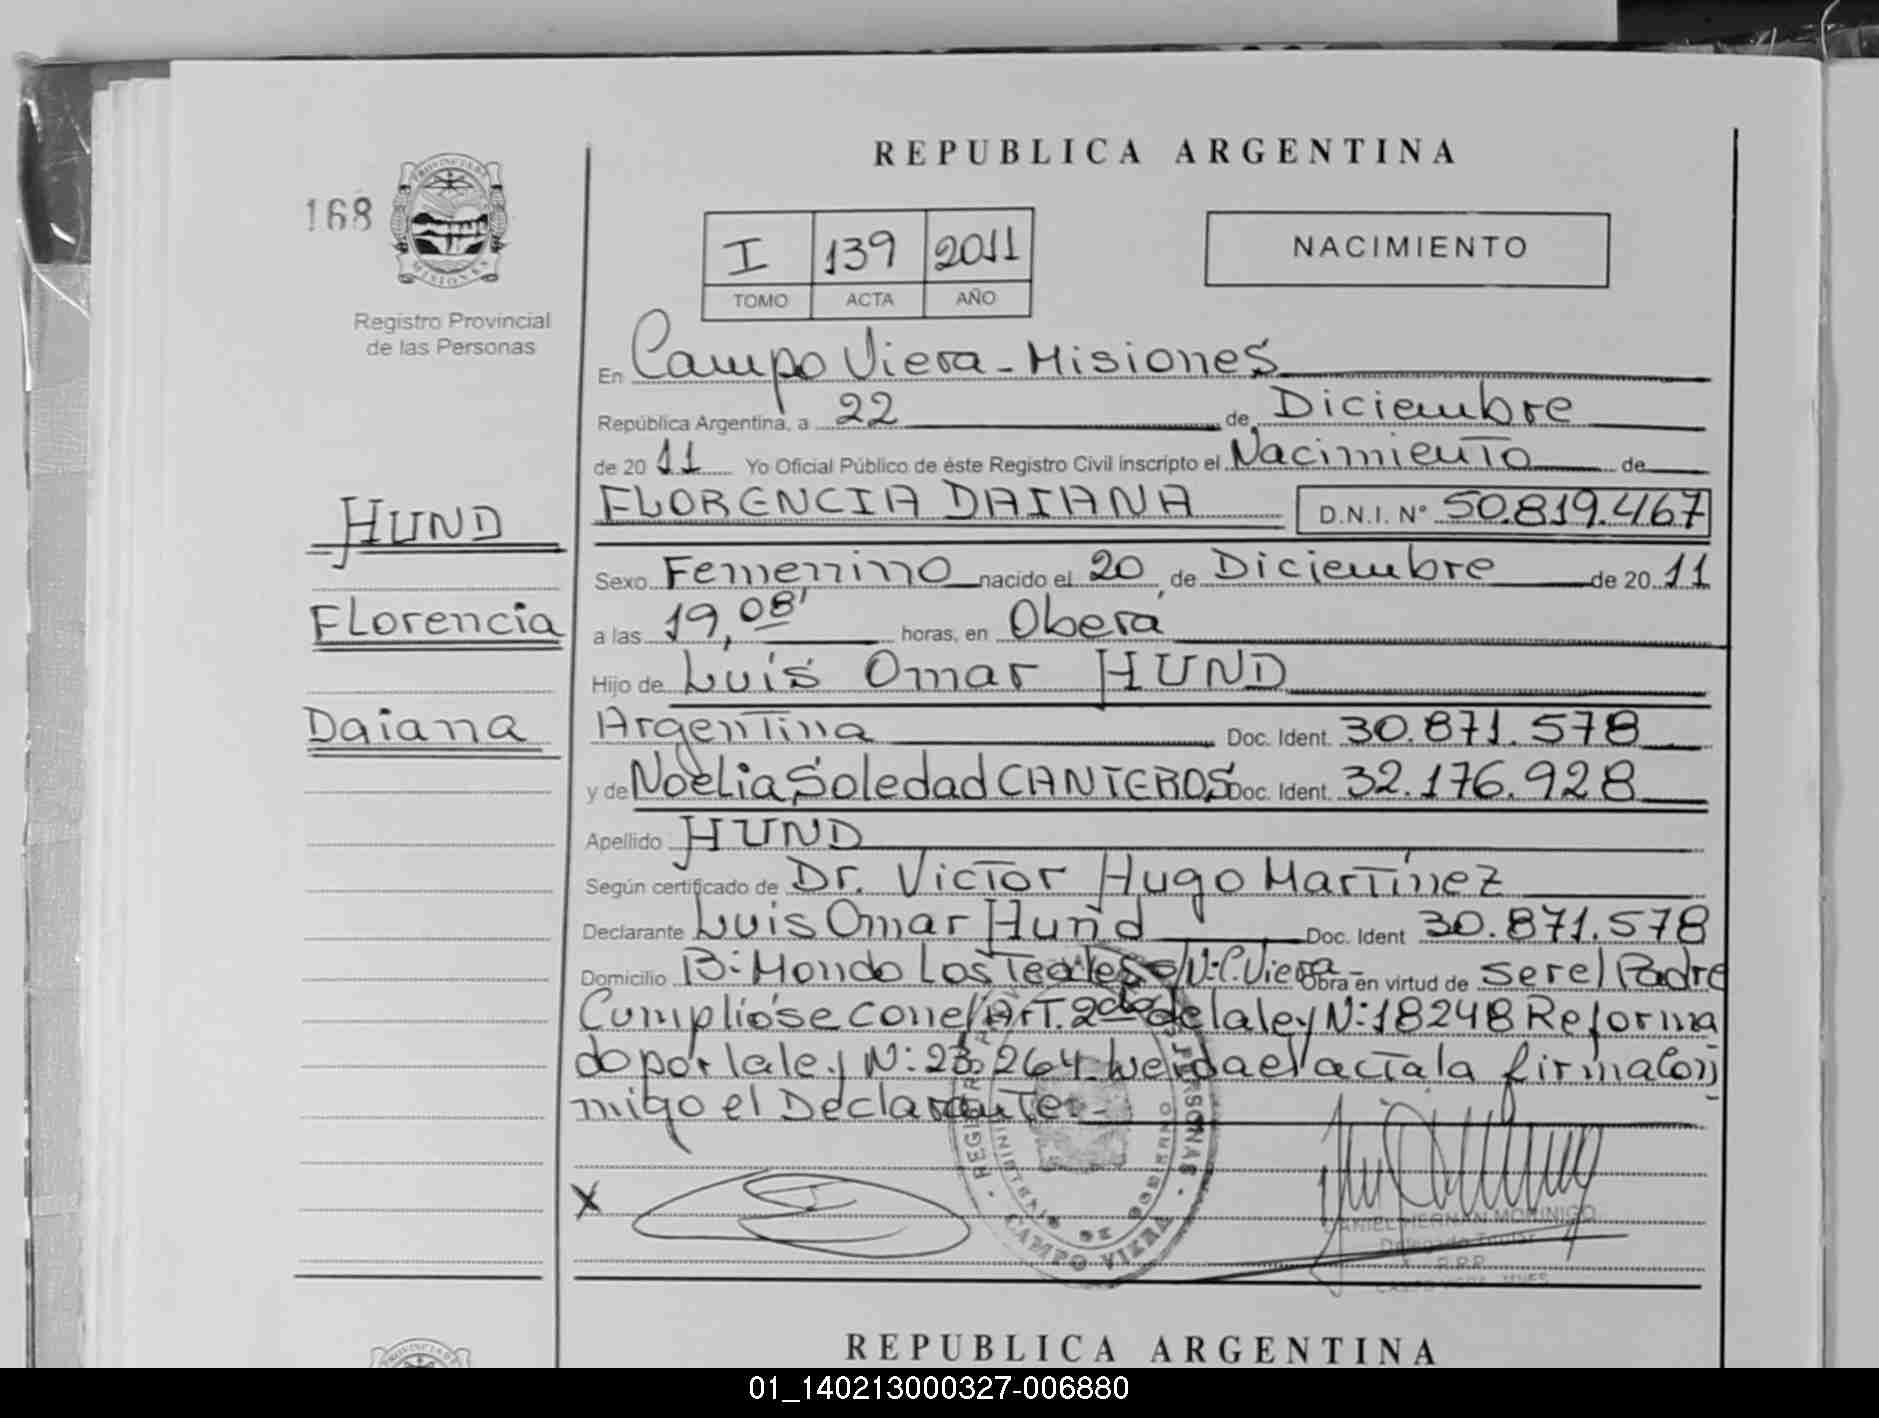 REPUBLICA ARGENTINA
168
PROVINCIA DE MISIONES
Registro Provincial
de las Personas
I 139 2011
TOMO ACTA AÑO
NACIMIENTO
En Campo Viera - Misiones
República Argentina, a 22 de Diciembre
de 2011 Yo Oficial Público de éste Registro Civil inscripto el Nacimiento de
HUND
FLORENCIA DAIANA D.N.I. N° 50.819.467
Sexo Femenino nacido el 20 de Diciembre de 2011
Florencia
a las 19,08' horas, en Oberá
Hijo de Luis Omar HUND
Daiana
Argentina Doc. Ident. 30.871.578
y de Noelia Soledad CANTEROS Doc. Ident. 32.176.928
Apellido HUND
Según certificado de Dr. Victor Hugo Martínez
Declarante Luis Omar Hund Doc. Ident 30.871.578
Domicilio B: Mondo Los Teales s/N: C. Viera - Obra en virtud de ser el Padre
Cumplióse con el Art. 2do de la ley N: 18248 Reforma
do por la ley N: 23.264 Leida el acta la firma Con
migo el Declarante
X
REGISTRO PERSONAS
MINISTERIO DE GOBIERNO
CAMPO VIERA
DANIEL HERNAN MORINIGO
Delegado Titular
R.P.P.
CAMPO VIERA - MNES
REPUBLICA ARGENTINA
01_140213000327-006880